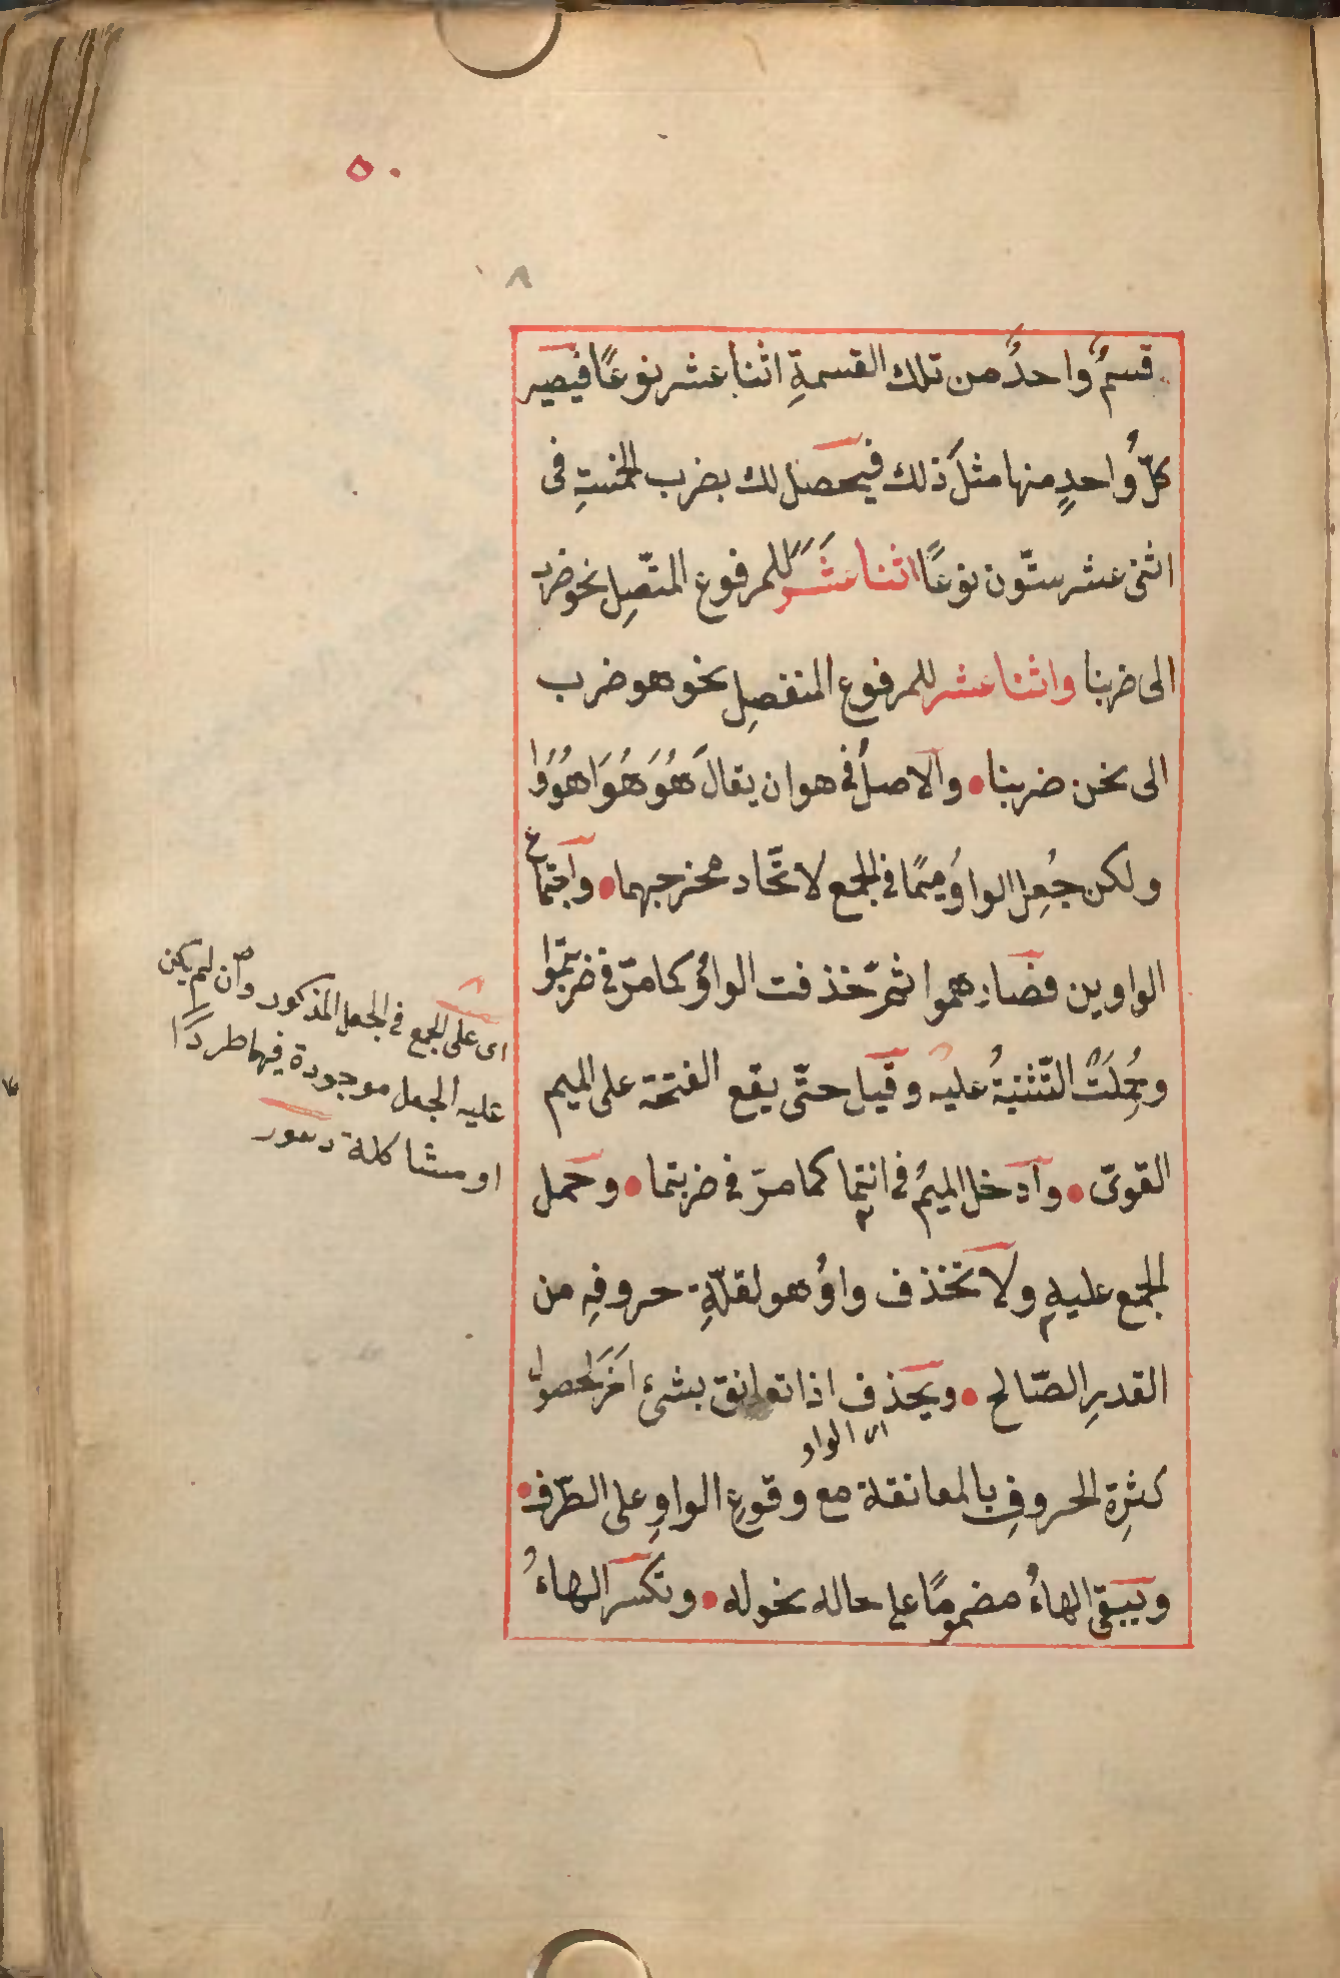 ٥٠
٨
قسمٌ واحدٌ من تلك القسمةِ اثنا عشر نوعًا فيصير
كلُّ واحدٍ منها مثلَ ذلك فيحصل لك بضرب الخمسةِ فى
اثنى عشر ستّون نوعًا اثنا عَشَرَ للمرفوع المتّصِل نحو ضرب
الى ضربنا واثنا عشر للمرفوع المنفصِل نحو هو ضرب
الى نحن ضربنا • والاصلُ فى هو ان يقالَ هُوَ هُوَا هُوُوا
ولكن جُعِل الواوُ ميمًا فى الجمع لاتّحاد مخرجهما • واجتماع
الواوين فصار هموا ثمّ حذفت الواوُ كما مرّ فى ضربتموا
وحُمِلَتْ التّثنيةُ عليه وقيل حتّى يقع الفتحة على الميم
القوىّ • وادخل الميمُ فى انتما كما مرّ فى ضربتما • وحمل
الجمع عليه ولا تحذف واوُ هو لقلّةِ حروفِه من
القدرِ الصّالح • ويحذف اذا تعانق بشئ اخَرَ لحصول
اى الواو
كثرِة الحروفِ بالمعانقة مع وقوعِ الواوِ على الطّرف •
ويبقى الهاءُ مضمومًا على حاله نحو له • وتكسر الهاءُ
اى على الجمع فى الجعل المذكور وان لم يكن
عليه الجعل موجودة فيها طردًا
او مشاكلة